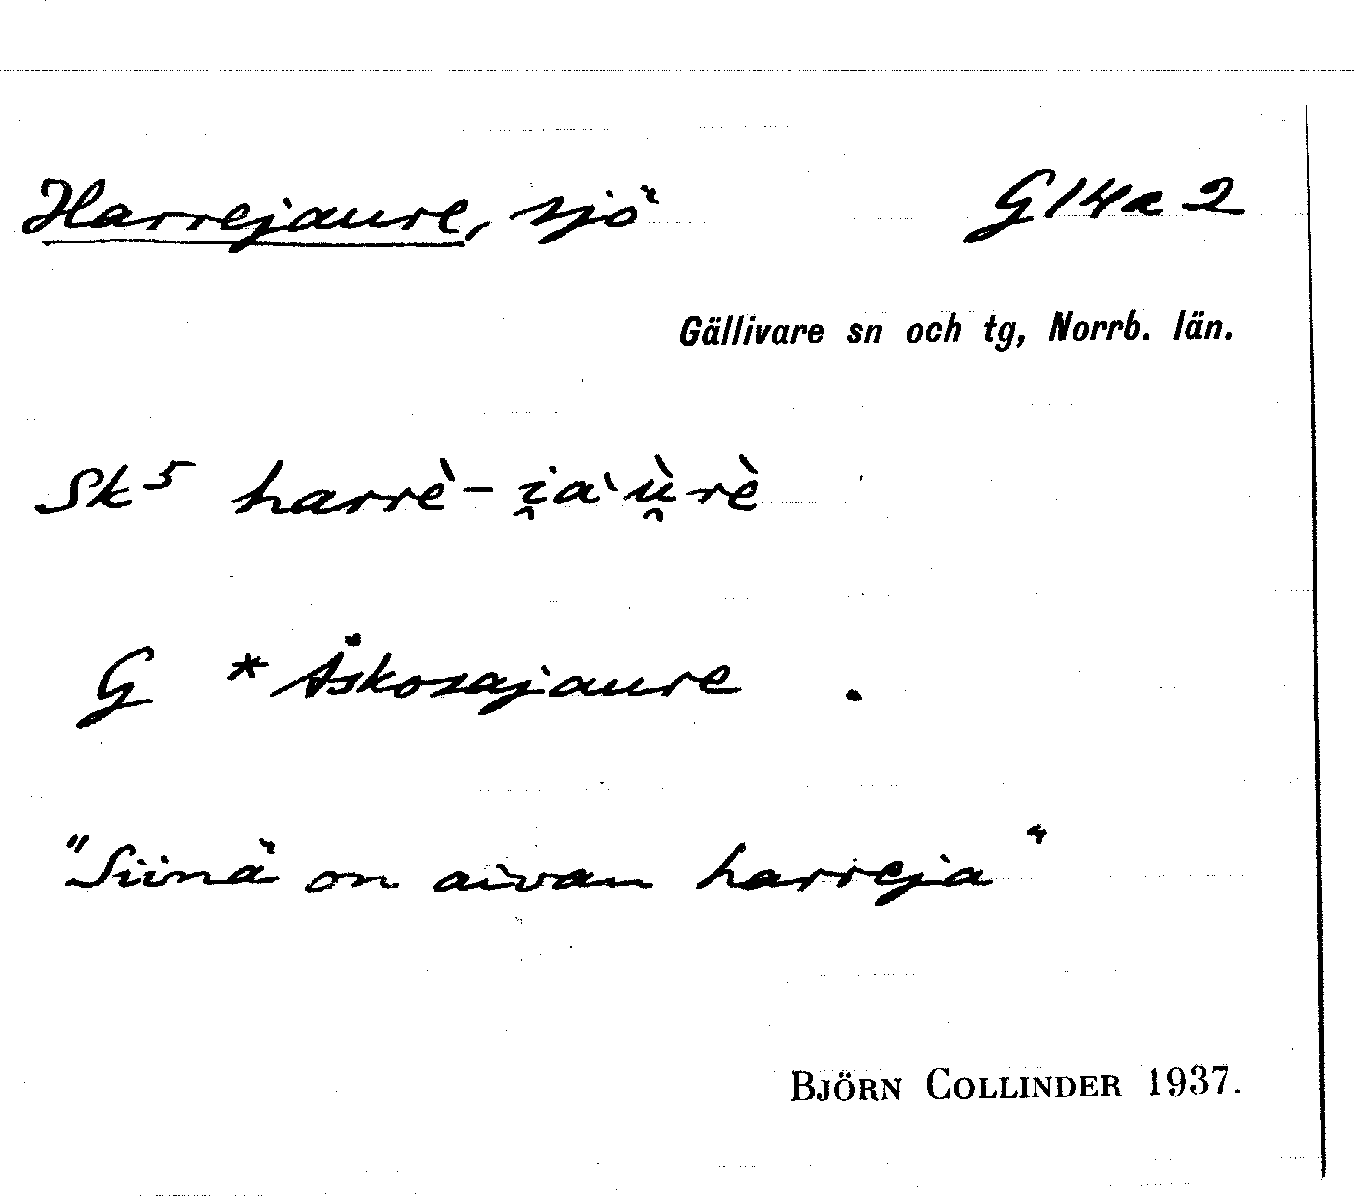 Harrejaure, sjö G14a2
Gällivare sn och tg, Norrb. län.
Sk⁵ harrè-i̯aˋù̯rè
G *Åskosajaure .
"Siinä on aivan harreja"
BJÖRN COLLINDER 1937.